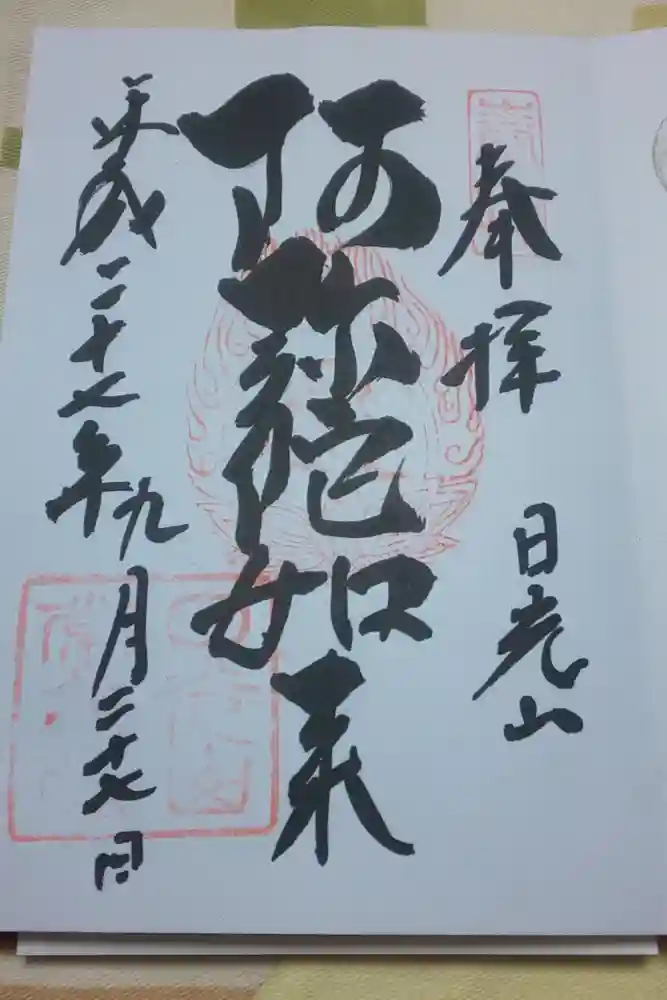 奉拝 日光山
阿弥陀如来
平成二十七年九月二十七日